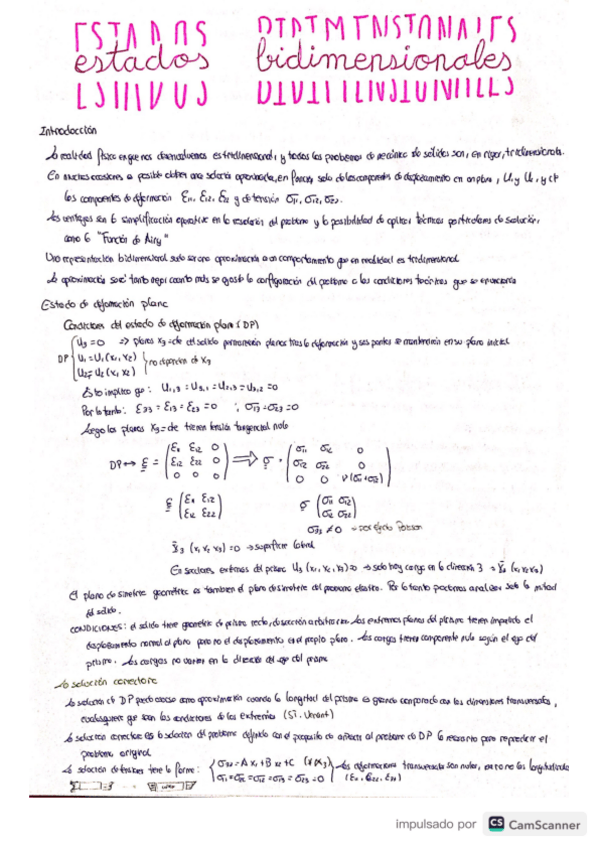 ESTADOS BIDIMENSIONALES
estados bidimensionales
Introducción
La realidad física en que nos desenvolvemos es tridimensional, y todos los problemas de mecánica de sólidos son, en rigor, tridimensionales.
En muchas ocasiones es posible obtener una solución aproximada, en función solo de los componentes de desplazamiento en un plano, U₁ y U₂, y de
los componentes de deformación ε₁₁, ε₁₂, ε₂₂ y de tensión σ₁₁, σ₁₂, σ₂₂.
Las ventajas son la simplificación operativa en la resolución del problema y la posibilidad de aplicar técnicas particulares de solución,
como la "Función de Airy"
Una representación bidimensional suele ser una aproximación a un comportamiento que en realidad es tridimensional
La aproximación será tanto mejor cuanto más se ajuste la configuración del problema a las condiciones teóricas que se enuncian
Estado de deformación plana
Condiciones del estado de deformación plana (DP)
DP { U₃ = 0 => planos x₃=cte del sólido permanecen planos tras la deformación y sus puntos se mantendrán en su plano inicial
U₁ = U₁(x₁, x₂)
U₂ = U₂(x₁, x₂) } no dependen de x₃
Esto implica que: U₁,₃ = U₃,₁ = U₂,₃ = U₃,₂ = 0
Por lo tanto: ε₃₃ = ε₁₃ = ε₂₃ = 0 ; σ₁₃ = σ₂₃ = 0
Luego los planos x₃=cte tienen tensión tangencial nula
DP ↔ ε = (ε₁₁ ε₁₂ 0 / ε₁₂ ε₂₂ 0 / 0 0 0) ⟹ σ = (σ₁₁ σ₁₂ 0 / σ₁₂ σ₂₂ 0 / 0 0 ν(σ₁₁+σ₂₂))
ε (ε₁₁ ε₁₂ / ε₁₂ ε₂₂) σ (σ₁₁ σ₁₂ / σ₁₂ σ₂₂)
σ₃₃ ≠ 0 → por efecto Poisson
(x₁, x₂, x₃) = 0 → superficie lateral
En secciones extremas del prisma U₃(x₁, x₂, x₃) = 0 → solo hay carga en la dirección 3
El plano de simetría geométrica es también el plano de simetría del problema elástico. Por lo tanto podemos analizar solo la mitad
del sólido.
CONDICIONES: el sólido tiene geometría de prisma recto, de sección arbitraria. Los extremos planos del prisma tienen impedido el
desplazamiento normal al plano pero no el desplazamiento en el propio plano. Las cargas tienen componente nula según el eje del
prisma. Las cargas no varían en la dirección del eje del prisma
La solución correctora
La solución de DP puede usarse como aproximación cuando la longitud del prisma es grande comparada con las dimensiones transversales,
cualesquiera que sean las condiciones de los extremos (St. Venant)
La solución correctora es la solución del problema definido con el propósito de añadir al problema de DP lo necesario para reproducir el
problema original
La solución de tensiones tiene la forma: { σ₃₃ = A x₁ + B x₂ + C (∀x₃)
σ₁₁ = σ₂₂ = σ₁₂ = σ₁₃ = σ₂₃ = 0 }
impulsado por CS CamScanner